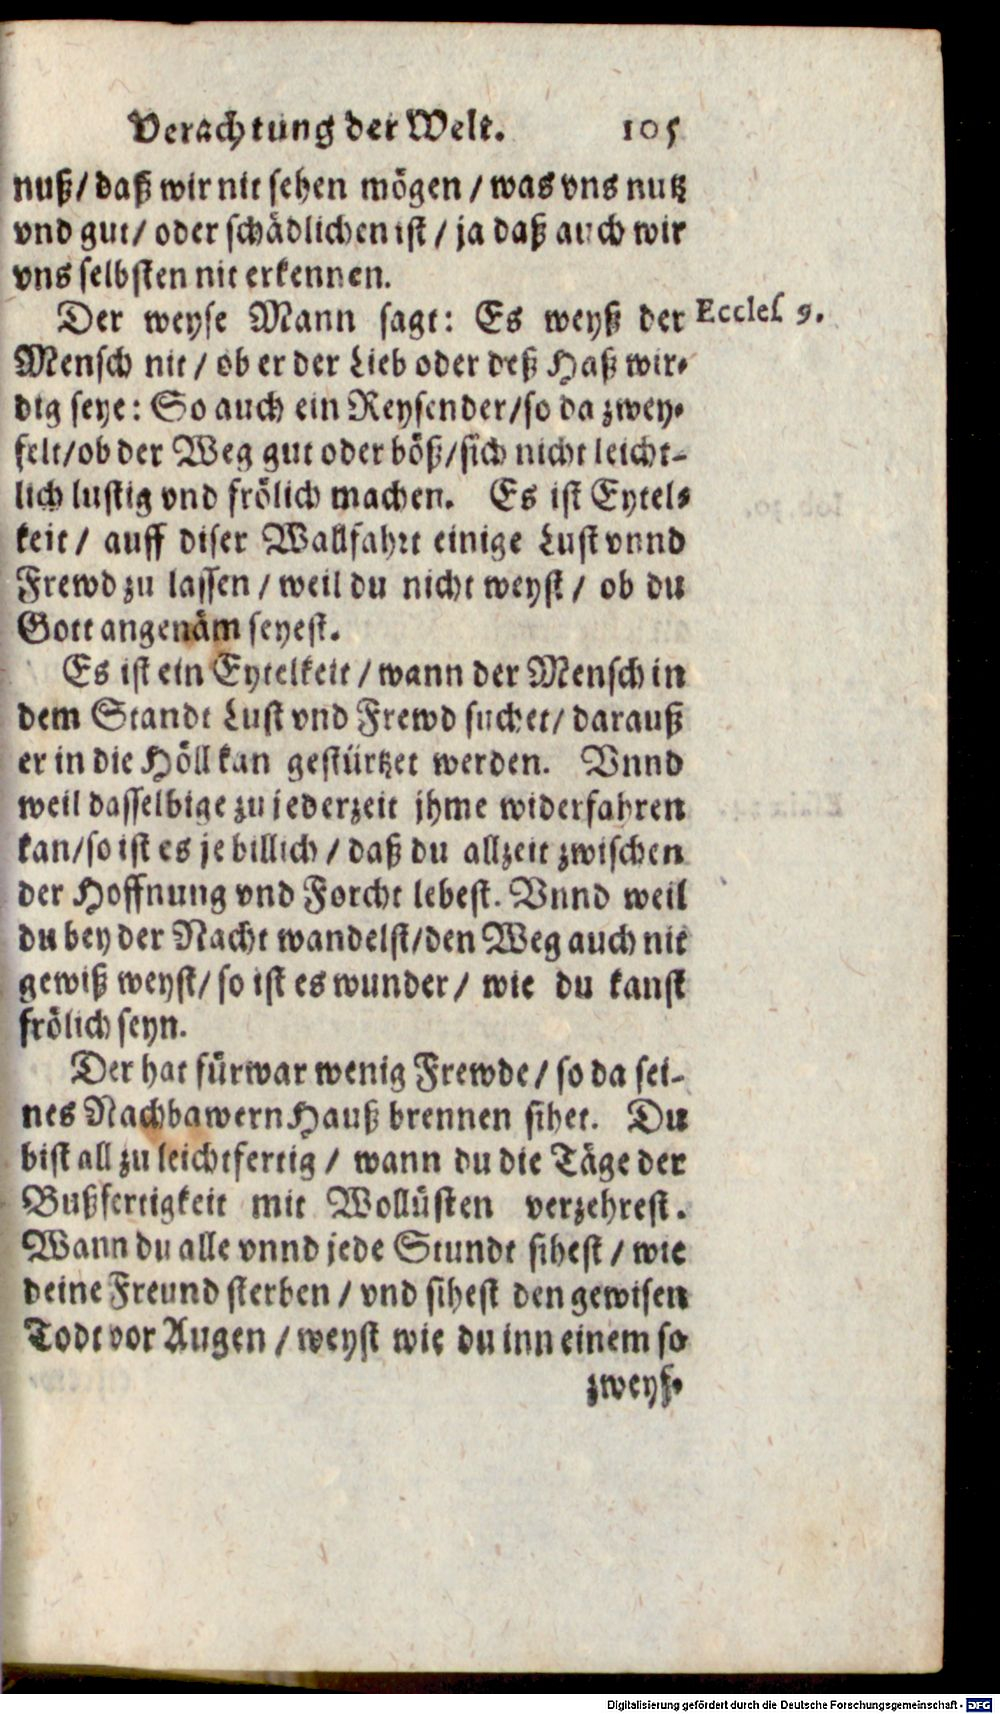 Verachtung der Welt. 105
nuß/ daß wir nit sehen mögen / was vns nutz
vnd gut/ oder schädlichen ist / ja daß auch wir
vns selbsten nit erkennen.
Der weyse Mann sagt: Es weyß der Eccles 9.
Mensch nit / ob er der Lieb oder deß Haß wir-
dig seye: So auch ein Reysender/so da zwey-
felt/ob der Weg gut oder böß/sich nicht leicht-
lich lustig vnd frölich machen. Es ist Eytel-
keit / auff diser Wallfahrt einige Lust vnnd
Frewd zu lassen / weil du nicht weyst / ob du
Gott angenäm seyest.
Es ist ein Eytelkeit / wann der Mensch in
dem Standt Lust vnd Frewd suchet/ darauß
er in die Höll kan gestürtzet werden. Vnnd
weil dasselbige zu jederzeit jhme widerfahren
kan/so ist es je billich / daß du allzeit zwischen
der Hoffnung vnd Forcht lebest. Vnnd weil
du bey der Nacht wandelst/den Weg auch nit
gewiß weyst/ so ist es wunder / wie du kanst
frölich seyn.
Der hat fürwar wenig Frewde / so da sei-
nes Nachbawern Hauß brennen sihet. Du
bist all zu leichtfertig / wann du die Täge der
Bußfertigkeit mit Wollüsten verzehrest.
Wann du alle vnnd jede Stundt sihest / wie
deine Freund sterben / vnd sihest den gewisen
Todt vor Augen / weyst wie du inn einem so
zweyf-
Digitalisierung gefördert durch die Deutsche Forschungsgemeinschaft - DFG